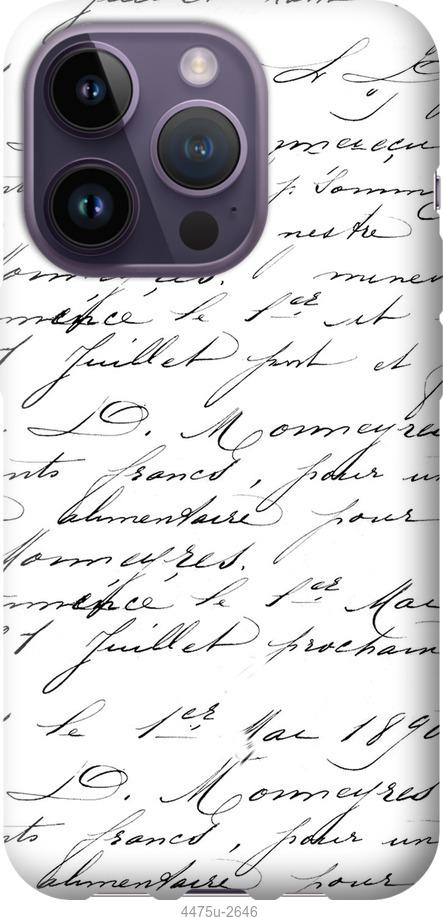 p. Somm
nestre
Monneyres. mineu
mence le 1er et
Juillet port et
D. Monneyres
nts francs, pour un
alimentaire pour
Monneyres.
mence le 1er Mai
Juillet prochain
le 1er Mai 1890
D. Monneyres
nts francs, pour un
alimentaire pour
4475u-2646